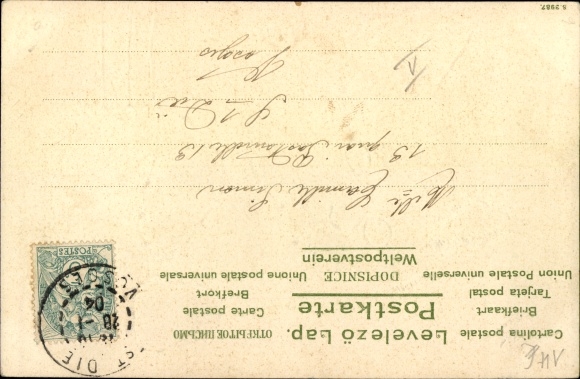 Cartolina postale Levelező Lap. ОТКРЫТОЕ ПИСЬМО
Briefkaart Postkarte Carte postale
Tarjeta postal Brefkort
Union Postale universelle DOPISNICE Unione postale universale
Weltpostverein
POSTES
ST DIE
28 -1
04
VOSGES
Mlle Camille Simon
13 quai 13
St Dié
Vosges
S. 2987.